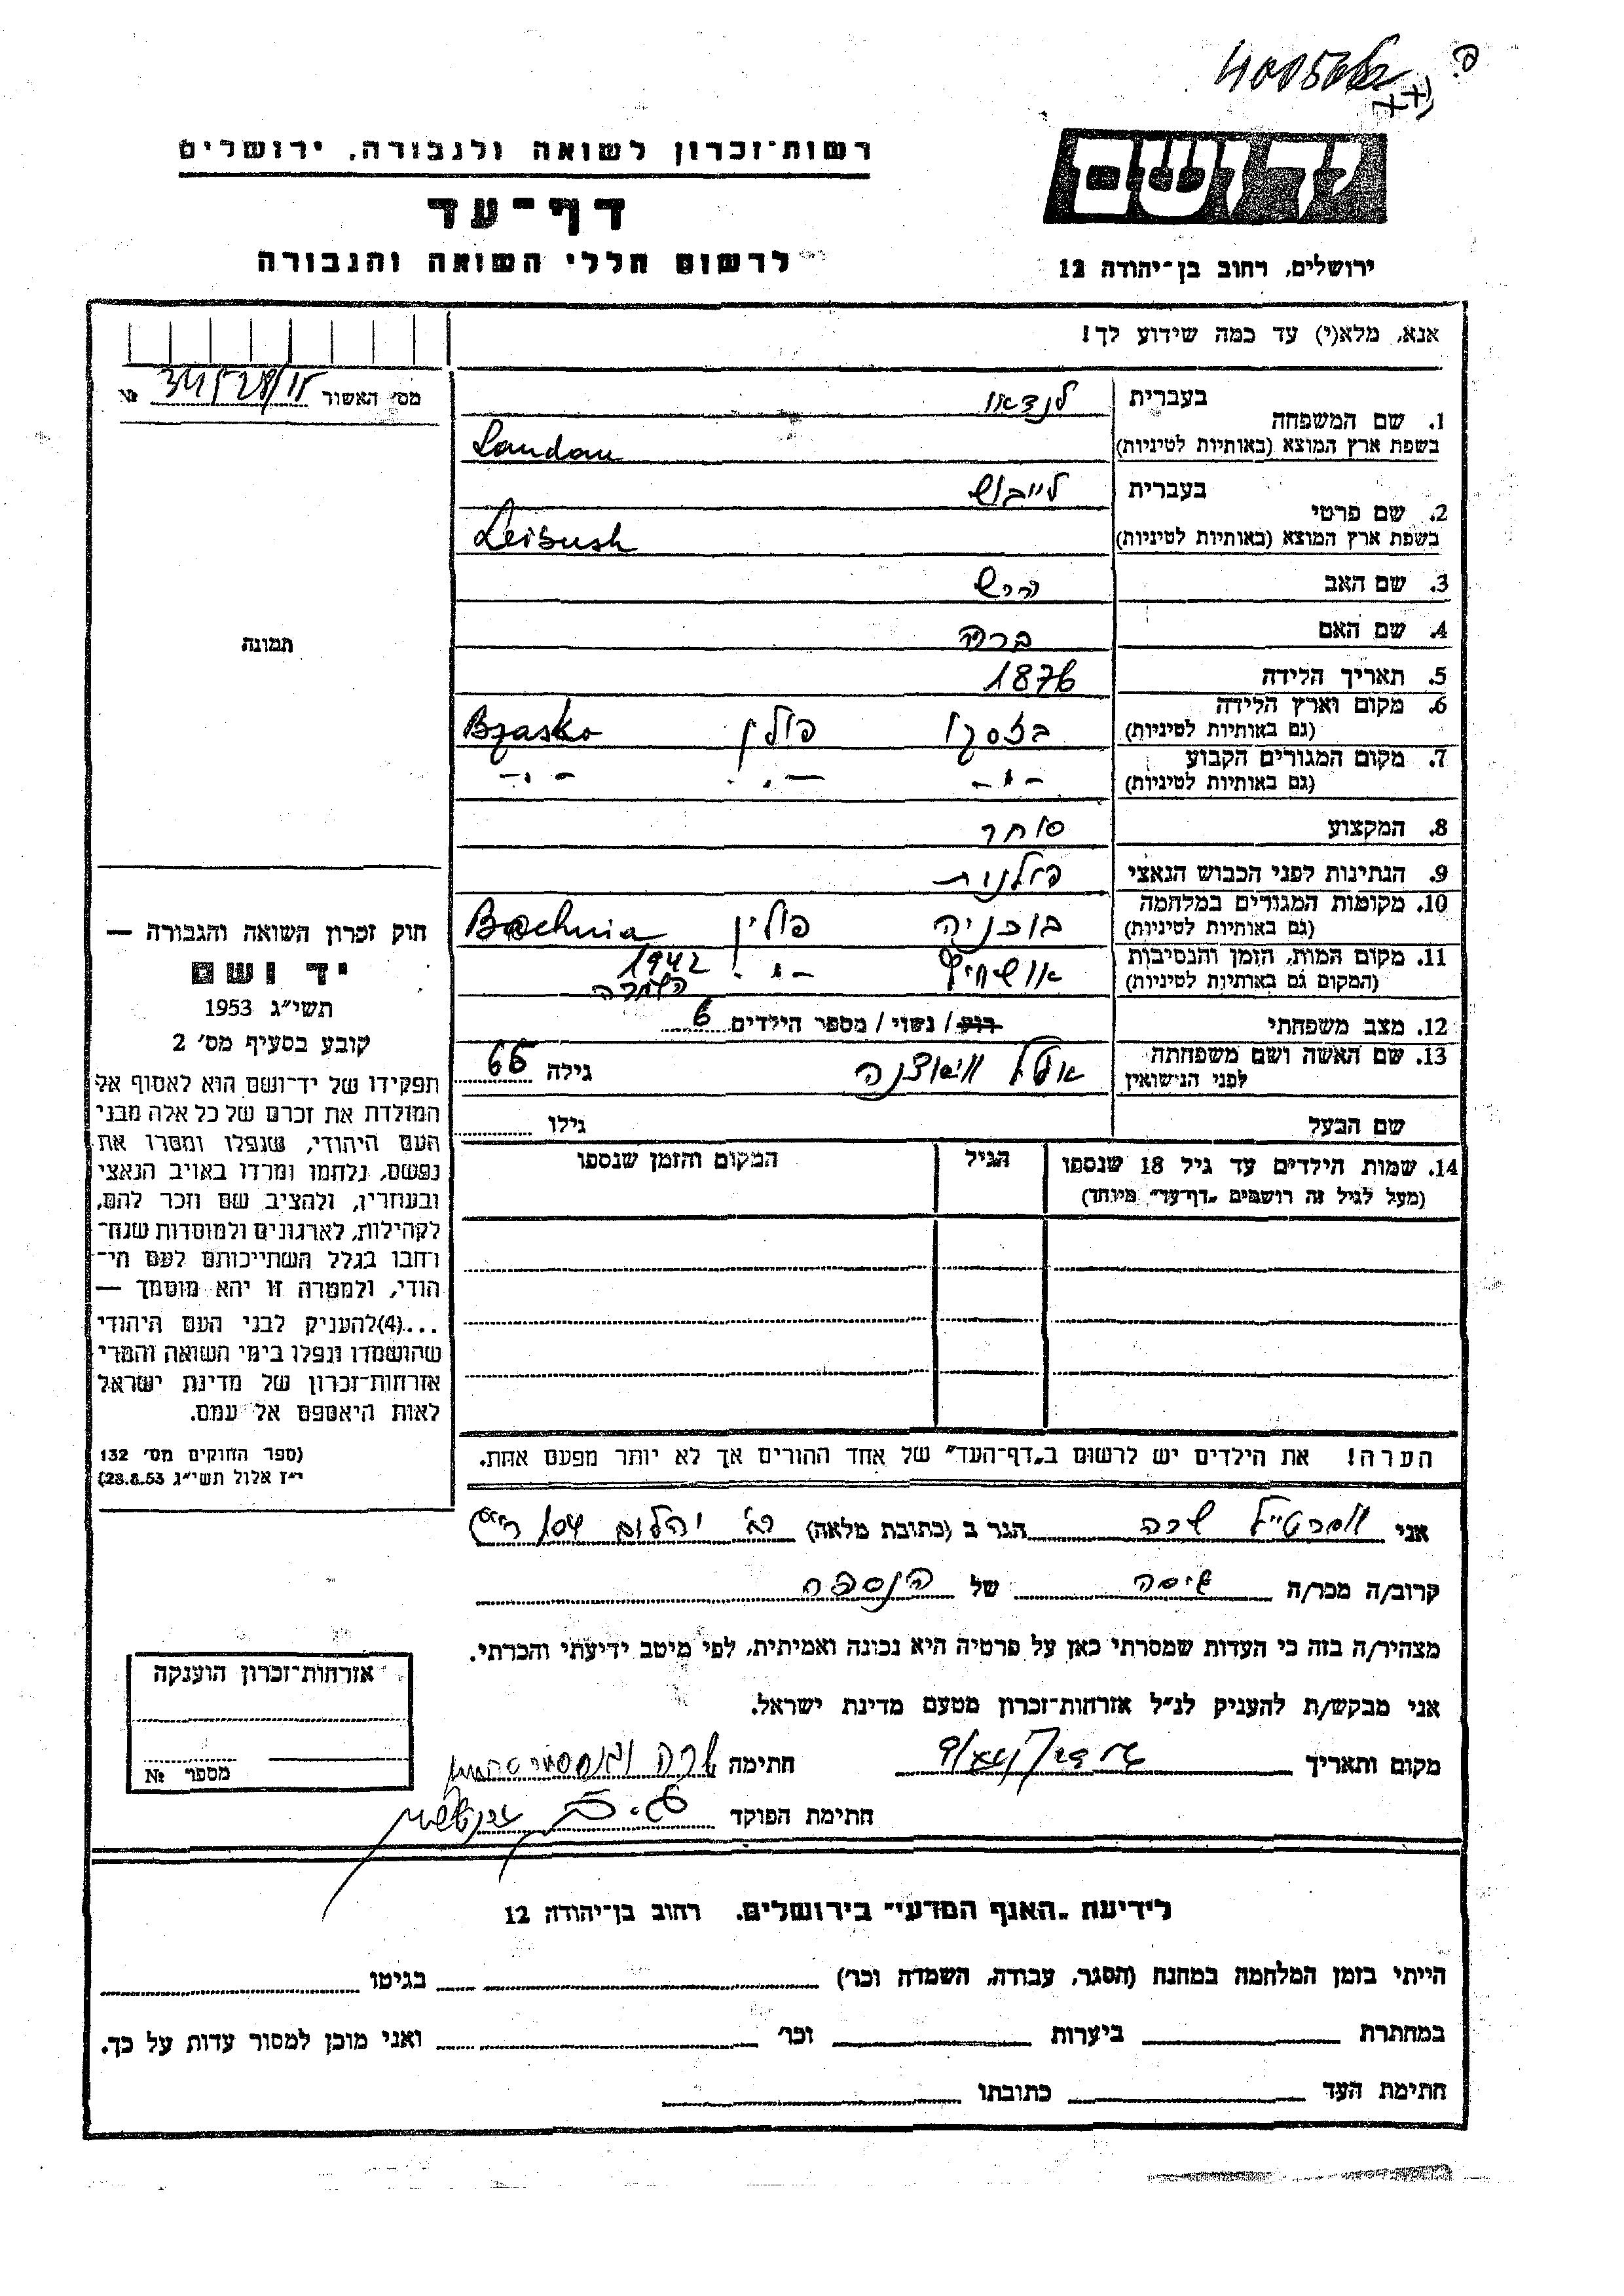 רשות־זכרון לשואה ולגבורה, ירושלים
דף־עד
לרשום חללי השואה והגבורה
יד ושם
ירושלים, רחוב בן־יהודה 12
אנא, מלא(י) עד כמה שידוע לך!
מס' האשור № 34528/15
1. שם המשפחה
בעברית לנדאו
בשפת ארץ המוצא (באותיות לטיניות) Landau
2. שם פרטי
בעברית לייבוש
בשפת ארץ המוצא (באותיות לטיניות) Leibush
3. שם האב הירש
4. שם האם ברכה
תמונה
5. תאריך הלידה 1876
6. מקום וארץ הלידה
(גם באותיות לטיניות) בזסקו פולין Bzasko
7. מקום המגורים הקבוע
(גם באותיות לטיניות) -"- -"- -"-
8. המקצוע סוחר
9. הנתינות לפני הכבוש הנאצי פולנית
10. מקומות המגורים במלחמה
(גם באותיות לטיניות) בוכניה פולין Bochnia
11. מקום המות, הזמן והנסיבות
(המקום גם באותיות לטיניות) אושויץ -"- 1942
12. מצב משפחתי רוק / נשוי / מספר הילדים 6
13. שם האשה ושם משפחתה
לפני הנישואין גילה 66
שם הבעל גילו
14. שמות הילדים עד גיל 18 שנספו
(מעל לגיל זה רושמים „דף־עד" מיוחד)
הגיל
המקום והזמן שנספו
חוק זכרון השואה והגבורה —
יד ושם
תשי"ג 1953
קובע בסעיף מס' 2
תפקידו של יד־ושם הוא לאסוף אל
המולדת את זכרם של כל אלה מבני
העם היהודי, שנפלו ומסרו את
נפשם, נלחמו ומרדו באויב הנאצי
ובעוזריו, ולהציב שם וזכר להם,
לקהילות, לארגונים ולמוסדות שנח־
רחבו בגלל השתייכותם לעם הי־
הודי, ולמטרה זו יהא מוסמך —
...(4)להעניק לבני העם היהודי
שהושמדו ונפלו בימי השואה והמרי
אזרחות־זכרון של מדינת ישראל
לאות היאספם אל עמם.
(ספר החוקים מס' 132
י"ז אלול תשי"ג 28.8.53)
הערה! את הילדים יש לרשום ב„דף־העד" של אחד ההורים אך לא יותר מפעם אחת.
אני שרה הגר ב (כתובת מלאה) יהלום
קרוב/ה מכר/ה של הנספה
מצהיר/ה בזה כי העדות שמסרתי כאן על פרטיה היא נכונה ואמיתית, לפי מיטב ידיעתי והכרתי.
אני מבקש/ת להעניק לנ"ל אזרחות־זכרון מטעם מדינת ישראל.
מקום ותאריך חתימה שרה
חתימת הפוקד
אזרחות־זכרון הוענקה
מספר №
לידיעת „האגף המדעי" בירושלים, רחוב בן־יהודה 12
הייתי בזמן המלחמה במחנה (הסגר, עבודה, השמדה וכו') בגיטו
במחתרת ביערות וכו' ואני מוכן למסור עדות על כך.
חתימת העד כתובתו